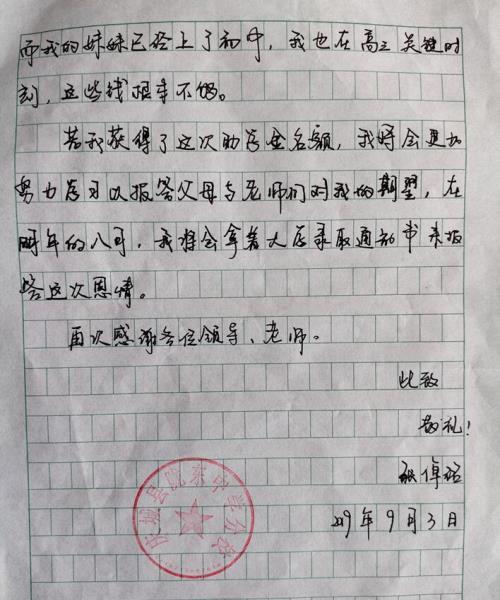 而我的妹妹已经上了初中，我也在高三关键时
刻，这些钱根本不够。
若我获得了这次助学金名额，我将会更加
努力学习以报答父母与老师们对我的期望，在
明年的八月，我将会拿着大学录取通知书来报
答这次恩情。
再次感谢各位领导、老师。
此致
敬礼！
2019年9月3日